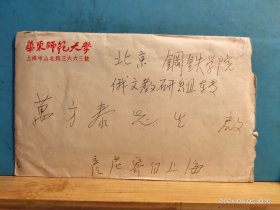 華東師範大學
上海中山北路三六六三號
北京 鋼鉄学院
俄文教研組 转
萬方泰先生 啟
寄 上海